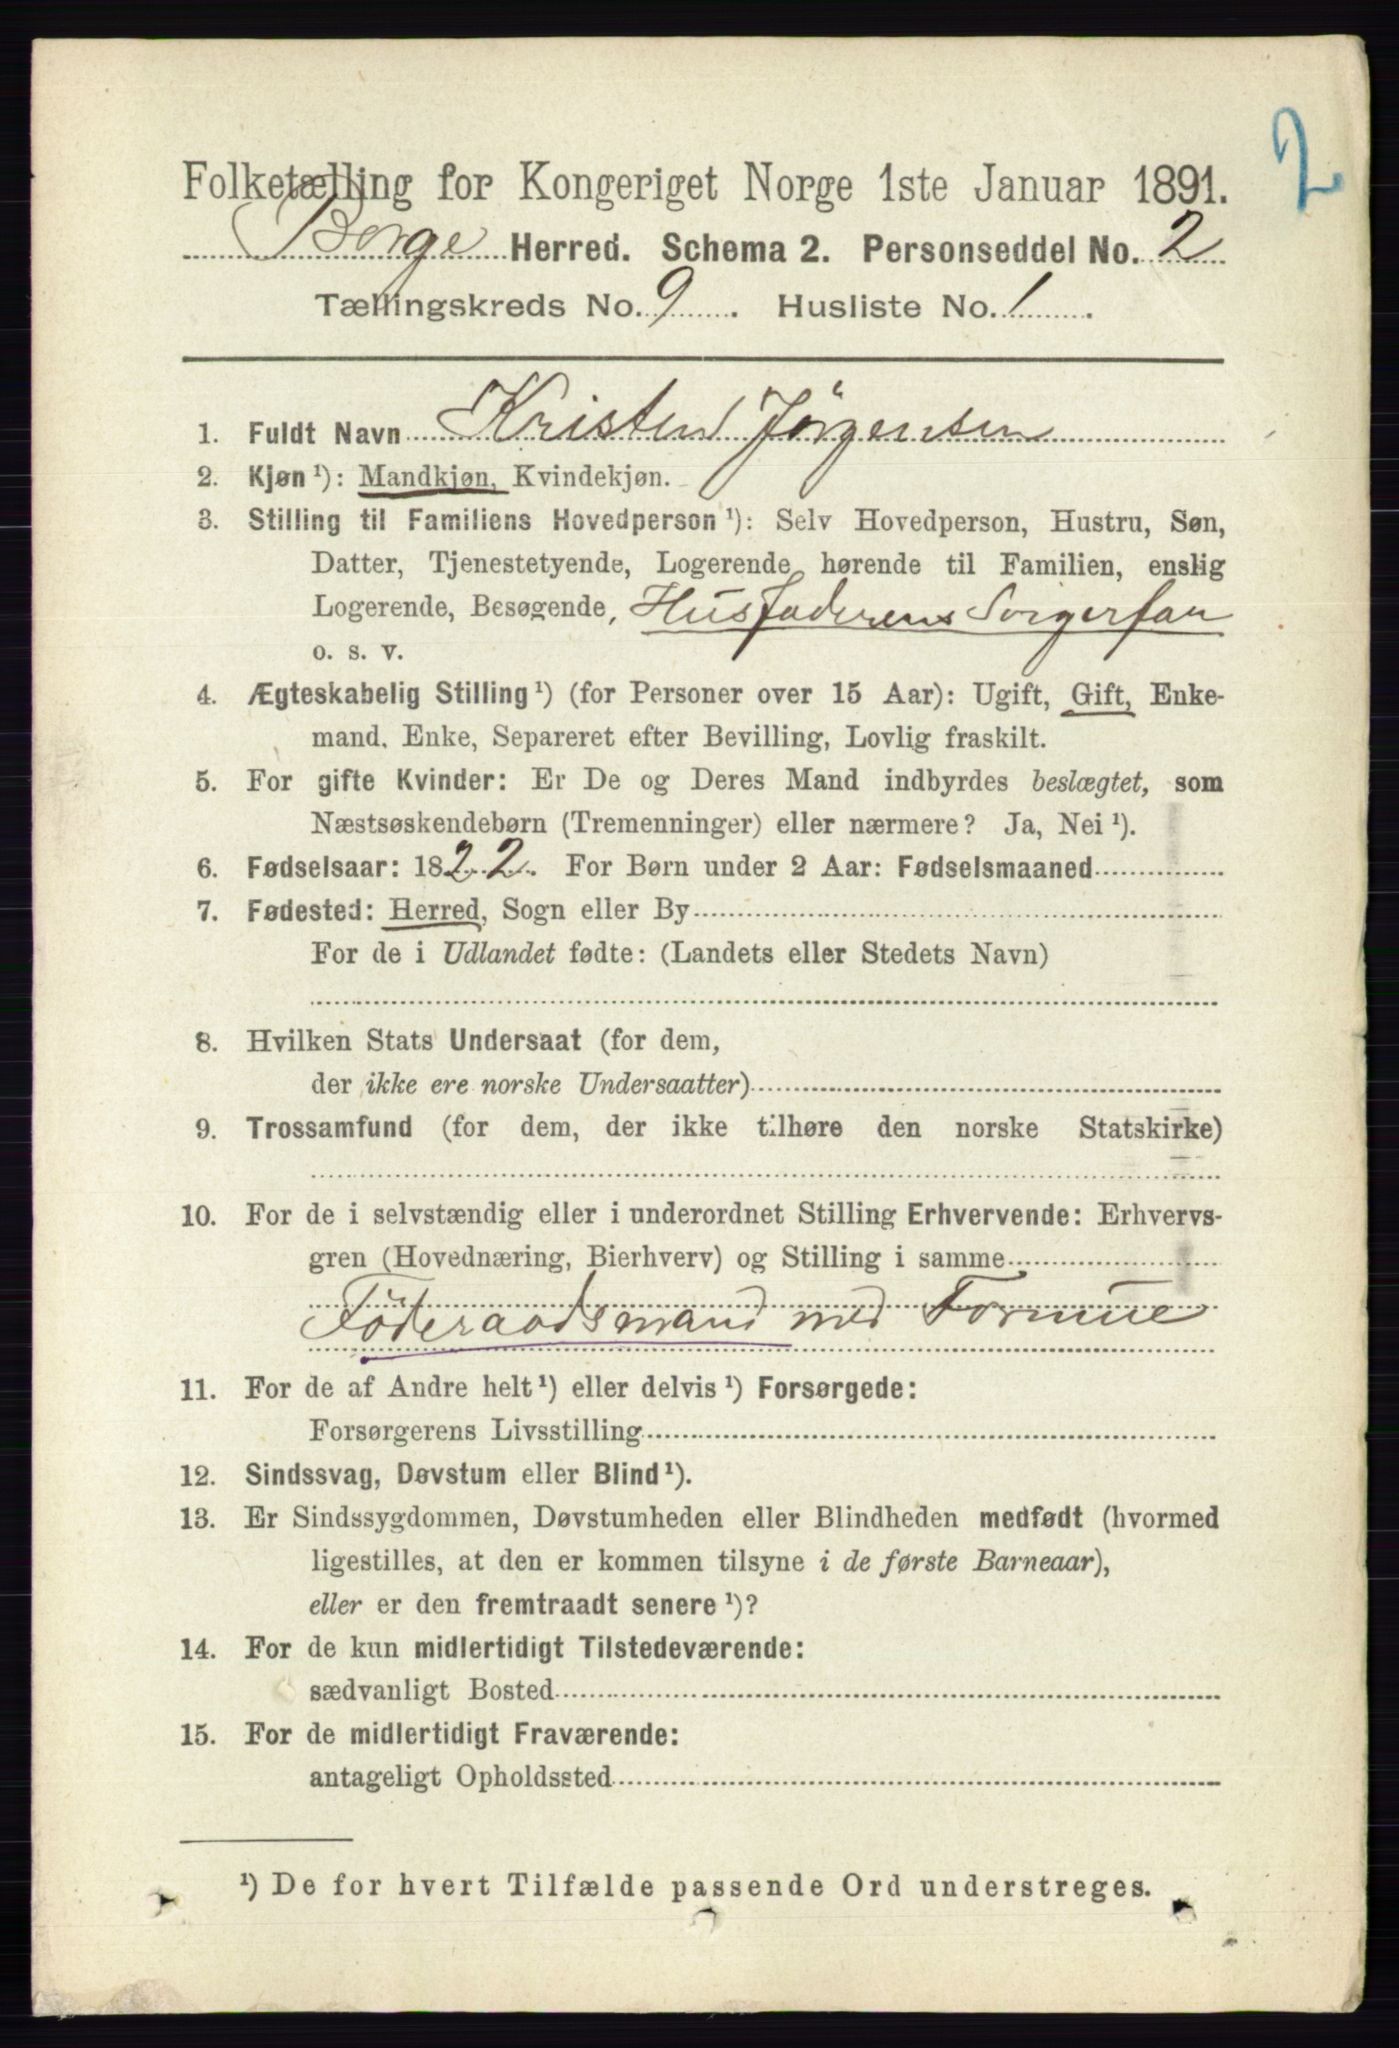 2
Folketælling for Kongeriget Norge 1ste Januar 1891.
Borge Herred. Schema 2. Personseddel No. 2
Tællingskreds No. 9. Husliste No. 1.
1. Fuldt Navn Kristen Jörgensen
2. Kjøn ¹): Mandkjøn, Kvindekjøn.
3. Stilling til Familiens Hovedperson ¹): Selv Hovedperson, Hustru, Søn,
Datter, Tjenestetyende, Logerende hørende til Familien, enslig
Logerende, Besøgende, Husfaderens Svigerfar
o. s. v.
4. Ægteskabelig Stilling ¹) (for Personer over 15 Aar): Ugift, Gift, Enke-
mand, Enke, Separeret efter Bevilling, Lovlig fraskilt.
5. For gifte Kvinder: Er De og Deres Mand indbyrdes beslægtet, som
Næstsøskendebørn (Tremenninger) eller nærmere? Ja, Nei ¹).
6. Fødselsaar: 1822. For Børn under 2 Aar: Fødselsmaaned
7. Fødested: Herred, Sogn eller By
For de i Udlandet fødte: (Landets eller Stedets Navn)
8. Hvilken Stats Undersaat (for dem,
der ikke ere norske Undersaatter)
9. Trossamfund (for dem, der ikke tilhøre den norske Statskirke)
10. For de i selvstændig eller i underordnet Stilling Erhvervende: Erhvervs-
gren (Hovednæring, Bierhverv) og Stilling i samme
Föderaadsmand med Formue
11. For de af Andre helt ¹) eller delvis ¹) Forsørgede:
Forsørgerens Livsstilling
12. Sindssvag, Døvstum eller Blind ¹).
13. Er Sindssygdommen, Døvstumheden eller Blindheden medfødt (hvormed
ligestilles, at den er kommen tilsyne i de første Barneaar),
eller er den fremtraadt senere ¹)?
14. For de kun midlertidigt Tilstedeværende:
sædvanligt Bosted
15. For de midlertidigt Fraværende:
antageligt Opholdssted
¹) De for hvert Tilfælde passende Ord understreges.